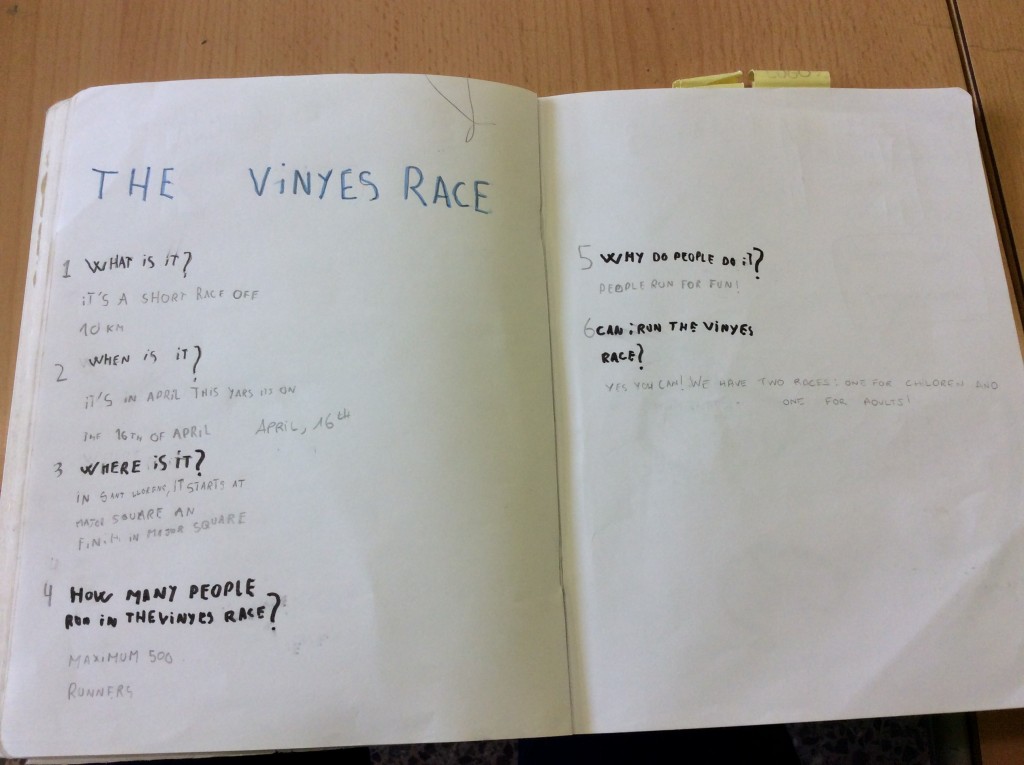 THE VINYES RACE
1 WHAT iS iT?
iT'S A SHORT RACE OFF
10 KM
2 WHEN iS iT?
iT'S iN APRIL THIS YARS iTS ON
THE 16TH OF APRiL APRIL, 16th
3 WHERE iS iT?
IN SANT LLORENÇ, IT STARTS AT
MAJOR SQUARE AN
FINISH IN MAJOR SQUARE
4 HOW MANY PEOPLE
RUN iN THE ViNYES RACE?
MAXIMUM 500
RUNNERS
5 WHY DO PEOPLE DO iT?
PEOPLE RUN FOR FUN!
6 CAN i RUN THE ViNYES
RACE?
YES YOU CAN! WE HAVE TWO RACES: ONE FOR CHILDREN AND
ONE FOR ADULTS!